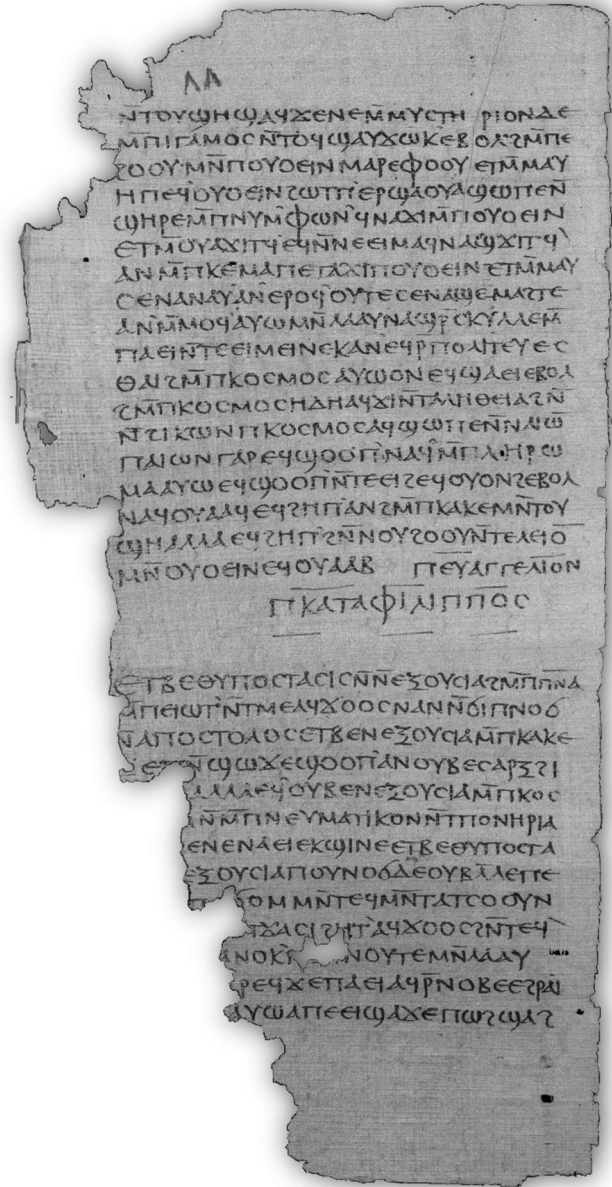 ⲚⲦⲞⲨϢⲎ ϢⲀϤϪⲈⲚⲈ ⲘⲘⲨⲤⲦⲎ ⲢⲒⲞⲚ ⲆⲈ
ⲘⲠⲒⲄⲀⲘⲞⲤ ⲚⲦⲞϤ ϢⲀⲨϪⲰⲔ ⲈⲂⲞⲖ ϨⲘ ⲠⲈ
ϨⲞⲞⲨ ⲘⲚ ⲠⲞⲨⲞⲈⲒⲚ ⲘⲀⲢⲈⲪⲞⲞⲨ ⲈⲦⲘⲘⲀⲨ
Ⲏ ⲠⲈϤⲞⲨⲞⲈⲒⲚ ϨⲰⲦⲠ ⲈⲢϢⲀ ⲞⲨⲀ ϢⲰⲠⲈ Ⲛ
ϢⲎⲢⲈ ⲘⲠⲚⲨⲘⲪⲰⲚ ϤⲚⲀϪⲒ ⲘⲠⲞⲨⲞⲈⲒⲚ
ⲈⲦⲘ ⲞⲨⲀ ϪⲒⲦϤ ⲈϤⲚⲚⲈⲈⲒⲘⲀ ϤⲚⲀϢϪⲒⲦϤ
ⲀⲚ ⲘⲠⲔⲈⲘⲀ ⲠⲈⲦⲀϪⲒ ⲠⲞⲨⲞⲈⲒⲚ ⲈⲦⲘⲘⲀⲨ
ⲤⲈⲚⲀⲚⲀⲨ ⲀⲚ ⲈⲢⲞϤ ⲞⲨⲦⲈ ⲤⲈⲚⲀϢⲈⲘⲀϨⲦⲈ
ⲀⲚ ⲘⲘⲞϤ ⲀⲨⲰ ⲘⲚ ⲖⲀⲀⲨ ⲚⲀϢⲢⲤⲔⲨⲖⲖⲈ Ⲙ
ⲠⲀⲈⲒ ⲚⲦⲈⲈⲒⲘⲈⲒⲚⲈ ⲔⲀⲚ ⲈϤⲢⲠⲞⲖⲒⲦⲈⲨⲈⲤ
ⲐⲀⲒ ϨⲘ ⲠⲔⲞⲤⲘⲞⲤ ⲀⲨⲰ ⲞⲚ ⲈϤϢⲀⲈⲒ ⲈⲂⲞⲖ
ϨⲘ ⲠⲔⲞⲤⲘⲞⲤ ⲎⲆⲎ ⲀϤϪⲒ ⲚⲦⲀⲖⲎⲐⲈⲒⲀ ϨⲚ
ⲚϨⲒⲔⲰⲚ ⲠⲔⲞⲤⲘⲞⲤ ⲀϤϢⲰⲠⲈ ⲚⲚⲀⲒⲰ̅
ⲠⲀⲒⲰⲚ ⲄⲀⲢ ⲈϤϢⲞⲞⲠ ⲚⲀϤ ⲘⲠⲖⲎⲢⲰ
ⲘⲀ ⲀⲨⲰ ⲈϤϢⲞⲞⲠ ⲚⲦⲈⲈⲒϨⲈ ϤⲞⲨⲞⲚϨ ⲈⲂⲞⲖ
ⲚⲀϤ ⲞⲨⲀⲀϤ ⲈϤϨⲎⲠ ⲀⲚ ϨⲘ ⲠⲔⲀⲔⲈ ⲘⲚ ⲦⲞⲨ
ϢⲎ ⲀⲖⲖⲀ ⲈϤϨⲎⲠ ϨⲚⲚ ⲞⲨϨⲞⲞⲨ ⲚⲦⲈⲖⲈⲒⲞ̅
ⲘⲚ ⲞⲨⲞⲈⲒⲚ ⲈϤⲞⲨⲀⲀⲂ ⲠⲈⲨⲀⲄⲄⲈⲖⲒⲞⲚ
ⲠⲔⲀⲦⲀ ⲪⲒⲖⲒⲠⲠⲞⲤ
ⲈⲦⲂⲈ ⲐⲨⲠⲞⲤⲦⲀⲤⲒⲤ ⲚⲚⲈⲜⲞⲨⲤⲒⲀ ϨⲘ ⲠⲠⲚⲀ
ⲀⲠⲈⲒⲰⲦ ⲚⲦⲘⲈ ⲀϤϪⲞⲞⲤ ⲚⲀⲚ ⲚϬⲒ ⲠⲚⲞϬ
ⲚⲀⲠⲞⲤⲦⲞⲖⲞⲤ ⲈⲦⲂⲈ ⲚⲈⲜⲞⲨⲤⲒⲀ ⲘⲠⲔⲀⲔⲈ
Ⲛ ϢⲰϪⲈ ϢⲞⲞⲠ ⲀⲚ ⲞⲨⲂⲈ ⲤⲀⲢⲜ ϨⲒ
ⲀⲖⲖⲀ ⲈϤⲞⲨⲂⲈ ⲚⲈⲜⲞⲨⲤⲒⲀ ⲘⲠⲔⲞⲤ
ⲘⲚ ⲘⲠⲚⲈⲨⲘⲀⲦⲒⲔⲞⲚ ⲚⲦⲠⲞⲚⲎⲢⲒⲀ
ⲈⲚⲈⲚⲀⲈⲒ ⲈⲔϢⲒⲚⲈ ⲈⲦⲂⲈ ⲐⲨⲠⲞⲤⲦⲀ
ⲈⲜⲞⲨⲤⲒⲀ ⲠⲞⲨⲚⲞϬ ⲆⲈ ⲞⲨⲂⲖⲖⲈ ⲠⲈ
ϬⲞⲘ ⲘⲚ ⲦⲈϤⲘⲚⲦⲀⲦⲤⲞⲞⲨⲚ
ϪⲀⲤⲒϨⲎⲦ ⲀϤϪⲞⲞⲤ ϨⲚ ⲦⲈϤ
ⲀⲚⲞⲔ ⲚⲞⲨⲦⲈ ⲘⲚ ⲖⲀⲀⲨ
ⲢⲈϤϪⲈ ⲠⲀⲈⲒ ⲀϤⲢⲚⲞⲂⲈ ⲈϨⲢⲀⲒ
ⲀⲨⲰ ⲀⲠⲈⲈⲒϢⲀϪⲈ ⲠⲰϨ ϢⲀϨ